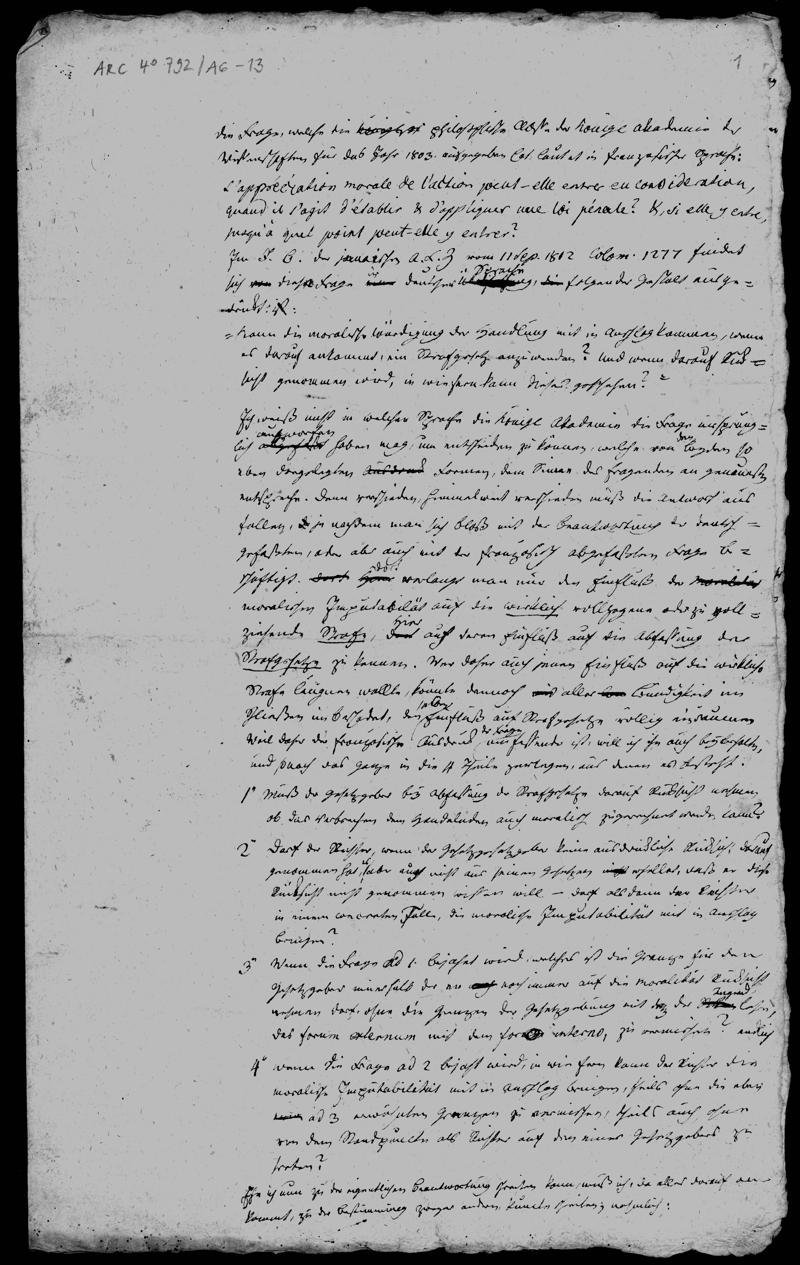 ARC 4° 792/A6-13
1
Die Frage, welche die philosophische Classe der Königl Akademie der
Wissenschaften für das Jahr 1803. aufgegeben hat, lautet in französischer Sprache:
L'appréciation morale de l'action peut-elle entrer en considération,
quand il s'agit d'établir & d'appliquer une loi pénale? &, si elle y entre,
jusqu'à quel point peut-elle y entrer?
Im I. B. der jenaischen A.L.Z vom 11 Sep. 1802 Colom. 1277 findet
sich diese Frage deutscher Sprache folgender Gestalt ausge=
drückt:
=Kann die moralische Würdigung der Handlung mit in Anschlag kommen, wenn
es darauf ankommt, ein Strafgesetz anzuwenden? und wenn darauf Rük=
sicht genommen wird, in wiefern kann dieses geschehen?=
Ich weiß nicht in welcher Sprache die Königl Akademie die Frage ursprüng=
lich entworfen haben mag, um entscheiden zu können, welche von den beyden so
eben dargelegten Formen, dem Sinne des Fragenden am genauesten
entspreche. Denn verschieden, himmelweit verschieden muß die Antwort aus
fallen, je nachdem man sich bloß mit der Beantwortung der deutsch=
gefaßten, oder aber auch mit der französisch abgefaßten Frage be=
schäftigt. dort verlangt man nur den Einfluß der
moralischen Imputabilität auf die wirklich vollzogene oder zu voll=
ziehende Strafe, hier auch deren Einfluß auf die Abfassung der
Strafgesetze zu kennen. Wer daher auch jenen Einfluß auf die wirkliche
Strafe läugnen wollte, könnte dennoch aller Bündigkeit im
Schließen unbeschadet, den Einfluß auf Strafgesetze völlig einräumen
Weil daher der französische Ausdruck der Frage umfassender ist, will ich ihn auch beybehalten,
und sonach das Ganze in die 4 Theile zerlegen, aus denen es besteht.
1° Muß der Gesetzgeber bey Abfassung der Strafgesetze darauf Rücksicht nehmen
ob das Verbrechen dem Handelnden auch moralisch zugerechnet werden kann?
2° Darf der Richter, wenn der Gesetzgeber keine ausdrückliche Rücksicht darauf
genommen hat, aber auch nicht aus seinen Gesetzen erhellet, daß er diese
Rücksicht nicht genommen wissen will – darf alsdann der Richter
in einem concreten Falle, die moralische Imputabilität mit in Anschlag
bringen?
3° Wenn die Frage ad 1. bejaht wird, welches ist die Grenze für den
Gesetzgeber innerhalb der er noch immer auf die Moralität Rücksicht
nehmen darf, ohne die Grenzen der Gesetzgebung mit der Tugendlehre,
das forum externum mit dem foro interno, zu vermischen? endlich
4° wenn die Frage ad 2 bejaht wird, in wie fern kann der Richter die
moralische Imputabilität mit in Anschlag bringen, theils ohne die eben
ad 3 erwähnten Grenzen zu vermischen, theils auch ohne
von dem Standpuncte als Richter auf den eines Gesetzgebers zu
treten?
Ehe ich nun zu der eigentlichen Beantwortung schreiten kann, muß ich, da alles darauf an
kommt, zu der Bestimmung zweyer andern Puncte schreiten; nehmlich: